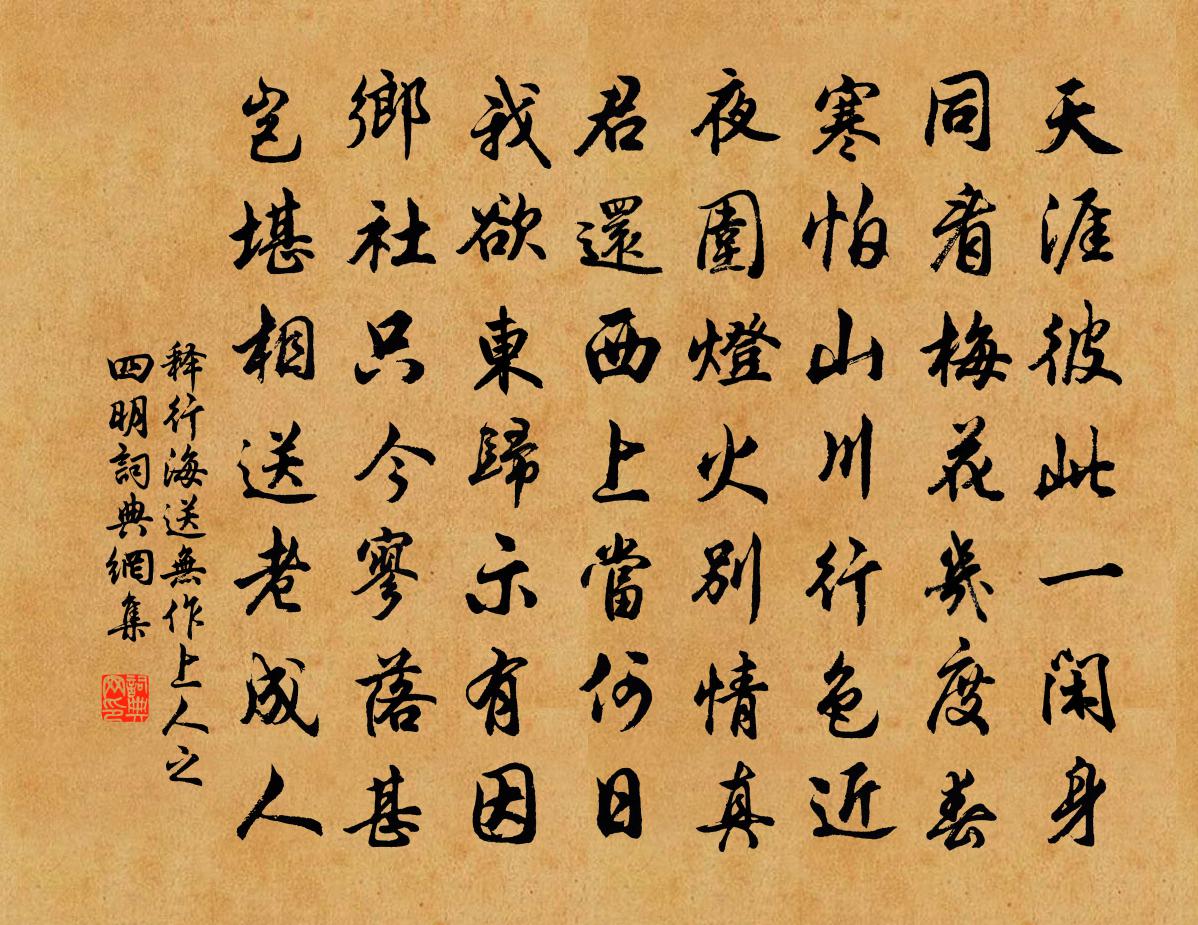 天涯彼此一閑身
同看梅花幾度春
寒怕山川行色近
夜圍燈火別情真
君還西上當何日
我欲東歸示有因
鄉社只今寥落甚
豈堪相送老成人
释行海送無作上人之
四明詞典網集
詞典网印